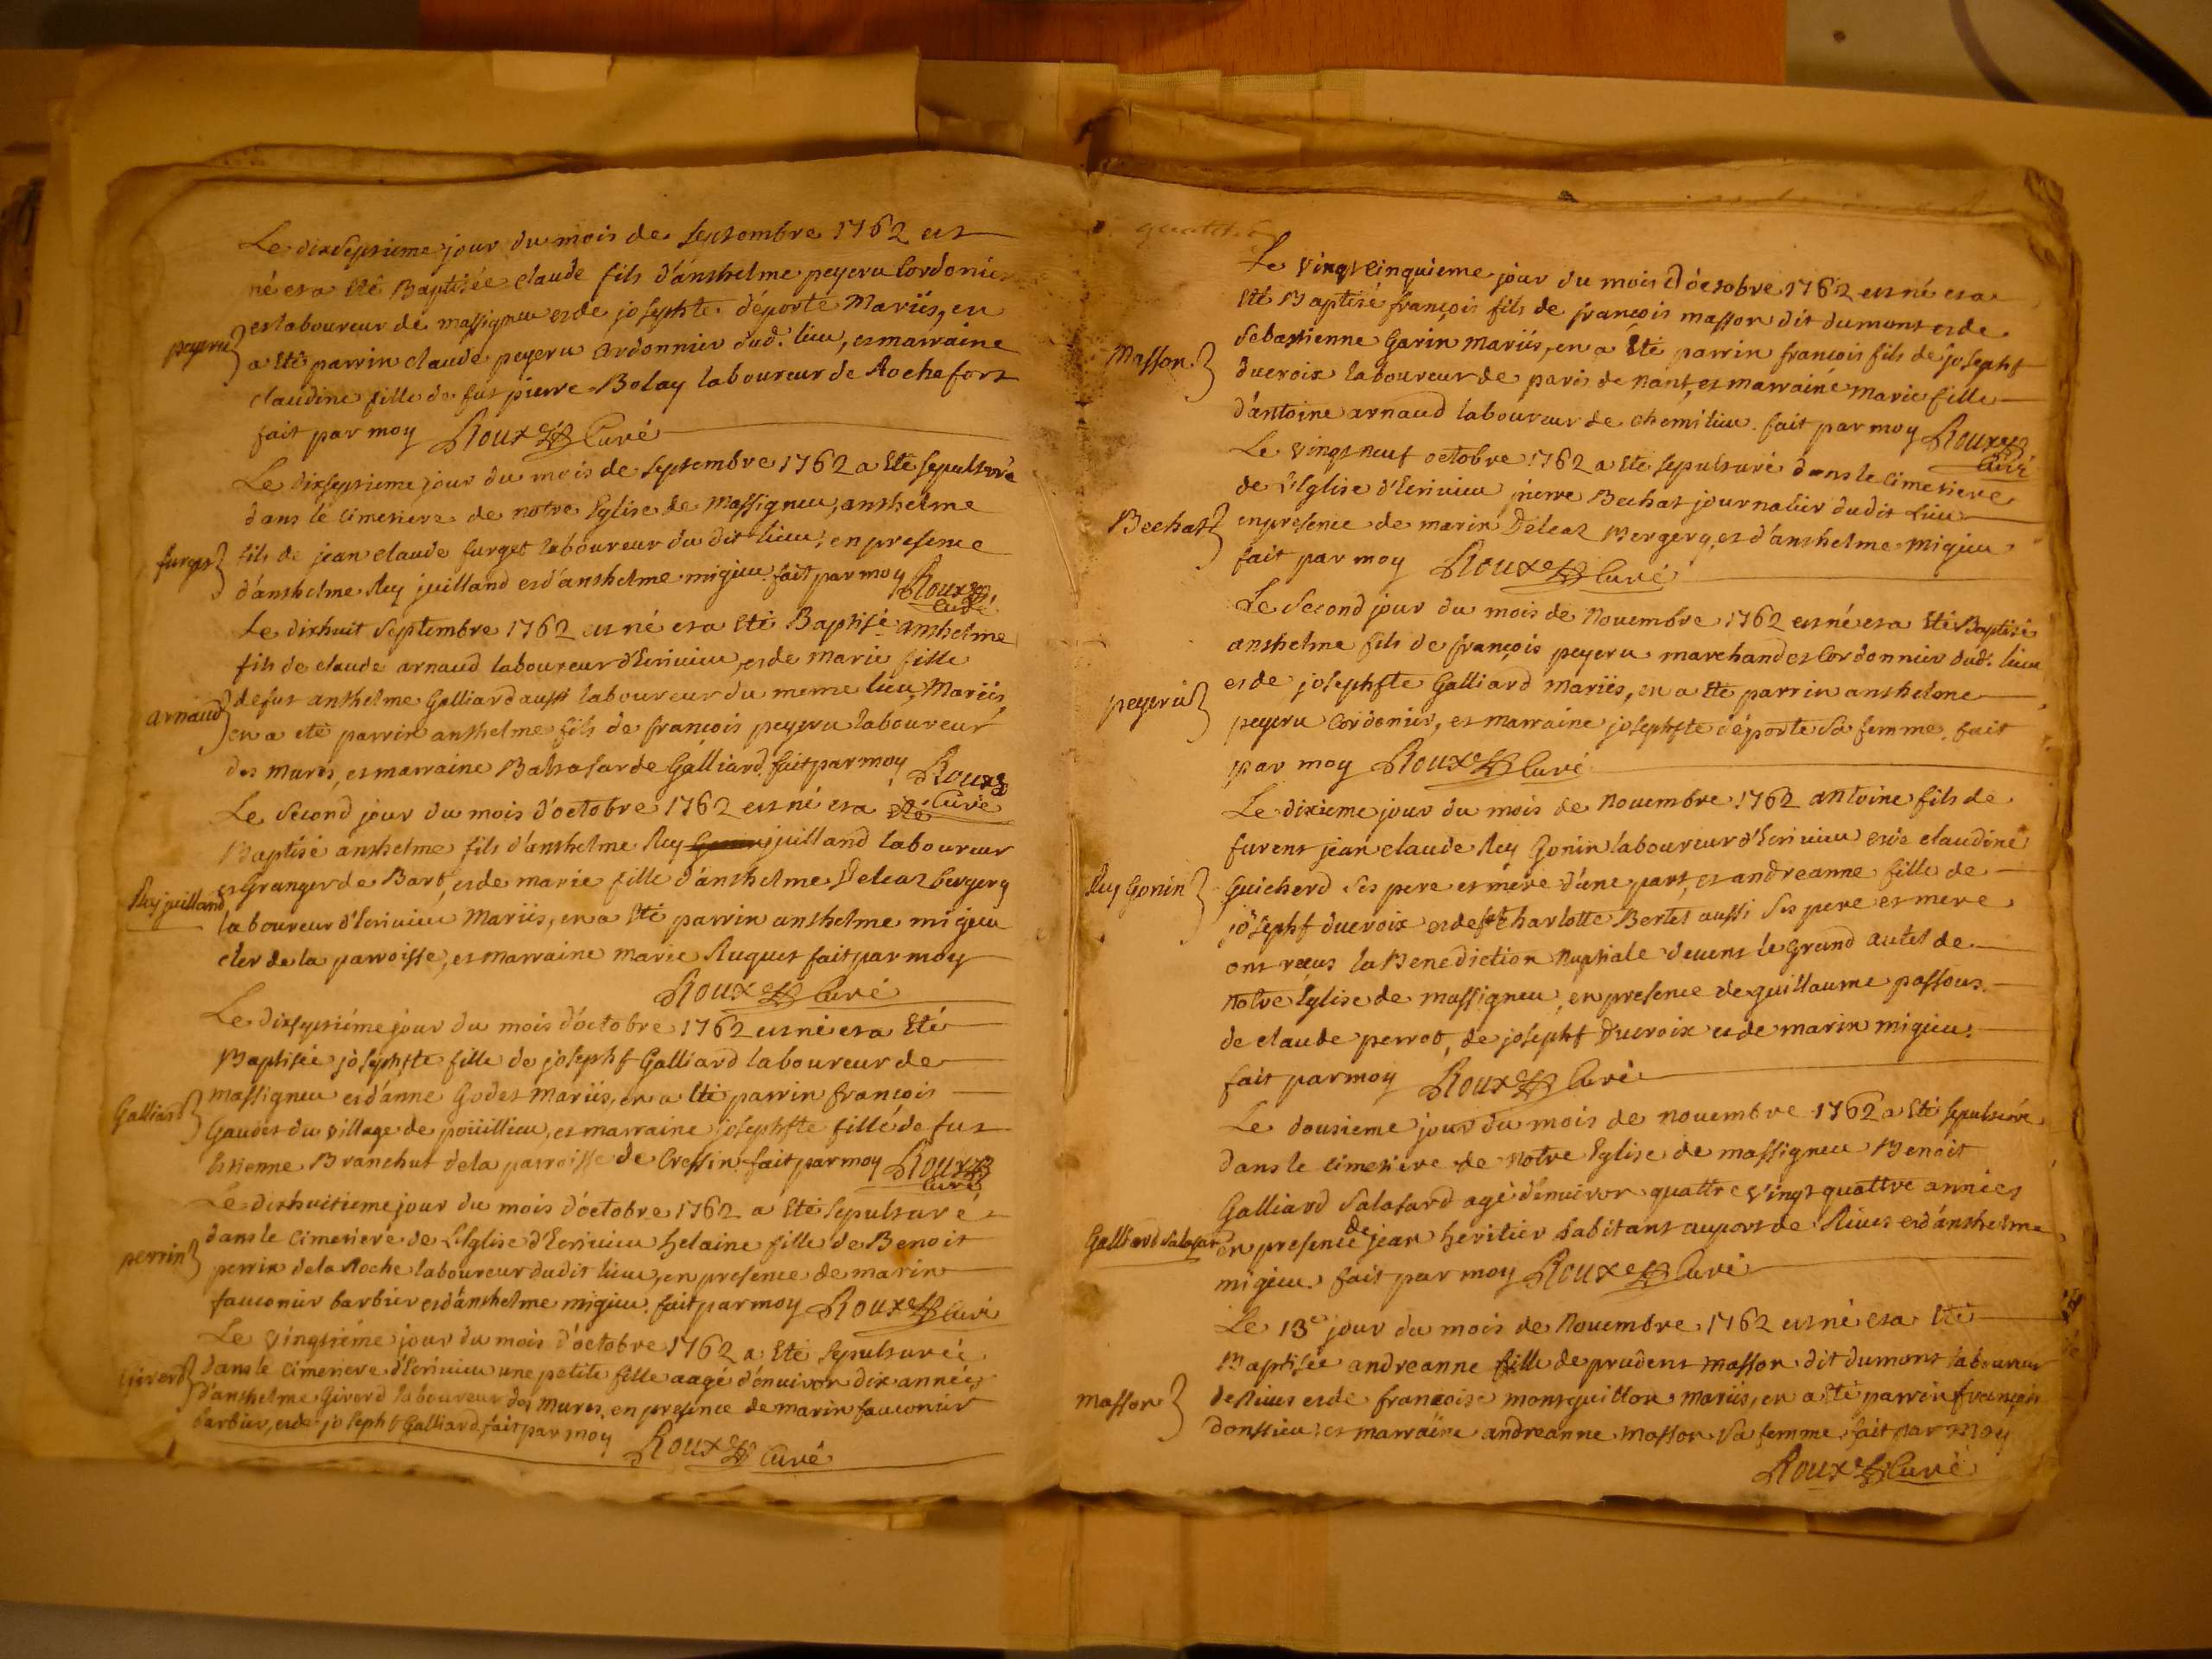 Le dixseptieme jour du mois de septembre 1762 est
né et a été Baptisée claude fils d'anthelme peyeru Cordonier
peyeru et laboureur de massigneu et de josephte déporte Mariés, en
a été parrin claude peyeru Cordonnier dud. lieu, et marraine
claudine fille de fut pierre Bolay laboureur de Rochefort
fait par moy Roux Curé
Le dixseptieme jour du mois de septembre 1762 a été sepulturé
dans le cimetiere de notre Eglise de Massigneu, anthelme
furget fils de jean claude furget laboureur du dit lieu, en presence
d'anthelme Rey juilland et d'anthelme migieu. fait par moy Roux
Curé
Le dixhuit Septembre 1762 est né et a été Baptisé anthelme
fils de claude arnaud laboureur d'Ecrivieu, et de Marie fille
arnaud de fut anthelme Galliard aussi laboureur du meme lieu, Mariés,
en a eté parrin anthelme fils de françois peyeru laboureur
des mures, et marraine Baltasarde Galliard, fait par moy Roux
Curé
Le Second jour du mois d'octobre 1762 est né et a été
Baptisé anthelme fils d'anthelme Rey Gonin juilland laboureur
Rey juilland et Granger de Bart, et de marie fille d'anthelme Deleaz bergery
laboureur d'Ecrivieu Mariés, en a été parrin anthelme migieu
cler de la parroisse, et marraine marie Ruquet fait par moy
Roux Curé
Le dixseptiéme jour du mois d'octobre 1762 est né et a été
Baptisée josephte fille de josepht Galliard laboureur de
Galliard massigneu et d'anne Godet mariés, en a été parrin françois
Gaudet du village de poüillieu, et marraine josephte fille de fut
Estienne Branchut de la parroisse de Cressin. fait par moy Roux
Curé
Le dixhuitieme jour du mois d'octobre 1762 a été sepulturé
dans le cimetiere de L'Eglise d'Ecrivieu helaine fille de Benoit
perrin perrin de la Roche laboureur dudit lieu, en presence de marin
fauconier barbier et d'anthelme migieu. fait par moy Roux Curé
Le vingtiéme jour du mois d'octobre 1762 a été sepulturée
Giverd dans le cimetiere d'Ecrivieu une petite fille aagé d'enuiron dix années
d'anthelme Giverd laboureur des mures, en presence de marin fauconier
barbier, et de josepht Galliard, fait par moy Roux Curé
Le vingtcinquieme jour du mois d'octobre 1762 est né et a
été Baptisé françois fils de françois masson dit dumont et de
Masson Sebastienne Garin mariés, en a été parrin françois fils de josepht
ducroix laboureur de paris de nant, et marraine marie fille
d'antoine arnaud laboureur de chemilieu. fait par moy Roux
Curé
Le vingt neuf octobre 1762 a été sepulturé dans le cimetiere
de L'Eglise d'Ecrivieu pierre Bechat journalier dudit Lieu
Bechat en presence de marin Deleaz Bergery, et d'anthelme Migieu
fait par moy Roux Curé
Le Second jour du mois de Novembre 1762 est né et a été Baptisé
anthelme fils de françois peyeru marchand et Cordonnier dud. lieu
peyeru et de josephte Galliard mariés, en a été parrin anthelme
peyeru Cordonier, et marraine josephte déporte Sa femme, fait
par moy Roux Curé
Le dixieme jour du mois de Novembre 1762 antoine fils de
furent jean claude Rey Gonin laboureur d'Ecrivieu et de claudine
Rey Gonin Guicherd Ses pere et mere d'une part, et andreanne fille de
josepht ducroix et de fut charlotte Bertet aussi Ses pere et mere
ont reçus la Benediction Nuptiale devent le Grand autel de
notre Eglise de massigneu, en presence de guillaume passous,
de claude perrod, de josepht Ducroix et de marin migieu.
fait par moy Roux Curé
Le dousieme jour du mois de novembre 1762 a été sepulturé
dans le cimetiere de notre Eglise de massigneu Benoit
Galliard Salasard agé d'enuiron quattre vingt quattre années
Galliard Salasar en presence de jean heritier habitant au port de Rives et d'anthelme
migieu. fait par moy Roux Curé
Le 13e jour du mois de Novembre 1762 est né et a été
Baptisée andreanne fille de prudent masson dit dumont laboureur
masson de Rives et de françoise montguillon mariés, en a été parrin françois
donlieu, et marraine andreanne masson Sa femme, fait par moy
Roux Curé